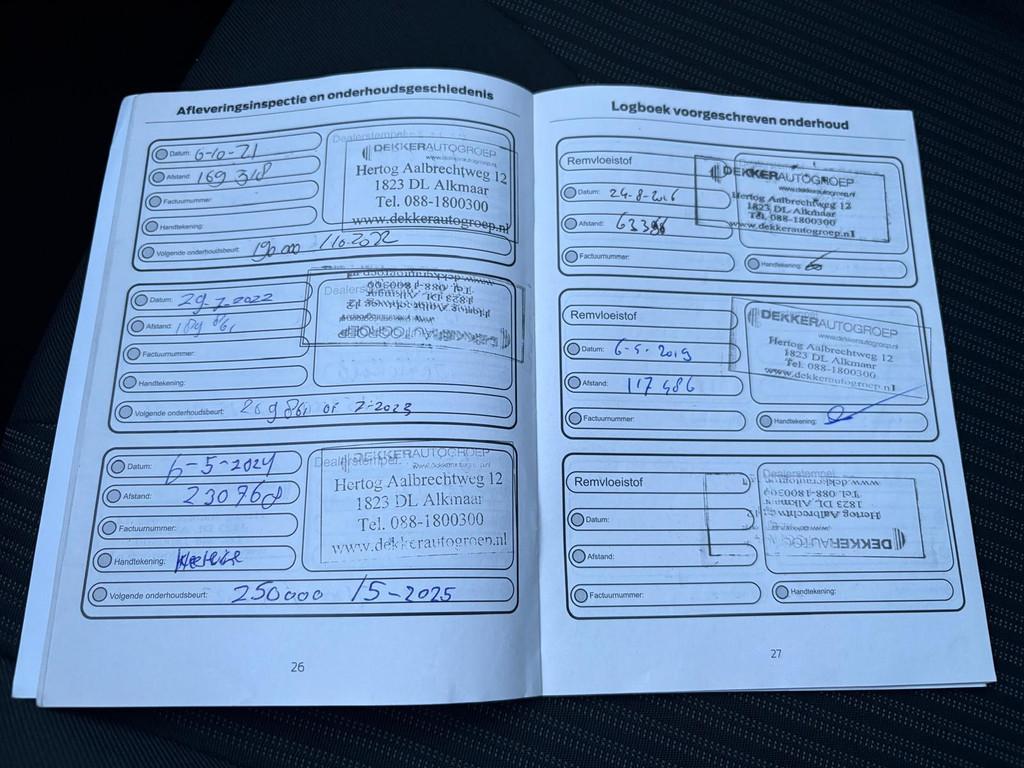 Afleveringsinspectie en onderhoudsgeschiedenis
Datum: 6-10-21
Afstand: 169 348
Factuurnummer:
Handtekening:
Volgende onderhoudsbeurt: 190.000 / 10-2022
Dealerstempel:
DEKKERAUTOGROEP
www.dekkerautogroep.nl
Hertog Aalbrechtweg 12
1823 DL Alkmaar
Tel. 088-1800300
www.dekkerautogroep.nl
Datum: 29-7-2022
Afstand:
Factuurnummer:
Handtekening:
Volgende onderhoudsbeurt: of 7-2023
Dealerstempel
DEKKERAUTOGROEP
Hertog Aalbrechtweg 12
1823 DL Alkmaar
Tel. 088-1800300
www.dekkerautogroep.nl
Datum: 6-5-2024
Afstand: 230968
Factuurnummer:
Handtekening:
Volgende onderhoudsbeurt: 250000 /5-2025
Dealerstempel:
DEKKERAUTOGROEP
Hertog Aalbrechtweg 12
1823 DL Alkmaar
Tel. 088-1800300
www.dekkerautogroep.nl
26
Logboek voorgeschreven onderhoud
Remvloeistof
Datum: 24-8-2016
Afstand:
Factuurnummer:
DEKKERAUTOGROEP
www.dekkerautogroep.nl
Hertog Aalbrechtweg 12
1823 DL Alkmaar
Tel. 088-1800300
www.dekkerautogroep.nl
Handtekening:
Remvloeistof
Datum: 6-5-2019
Afstand: 117 486
Factuurnummer:
DEKKERAUTOGROEP
www.dekkerautogroep.nl
Hertog Aalbrechtweg 12
1823 DL Alkmaar
Tel. 088-1800300
www.dekkerautogroep.nl
Handtekening:
Remvloeistof
Datum:
Afstand:
Factuurnummer:
Dealerstempel
DEKKERAUTOGROEP
Hertog Aalbrechtweg 12
1823 DL Alkmaar
Tel. 088-1800300
www.dekkerautogroep.nl
Handtekening:
27